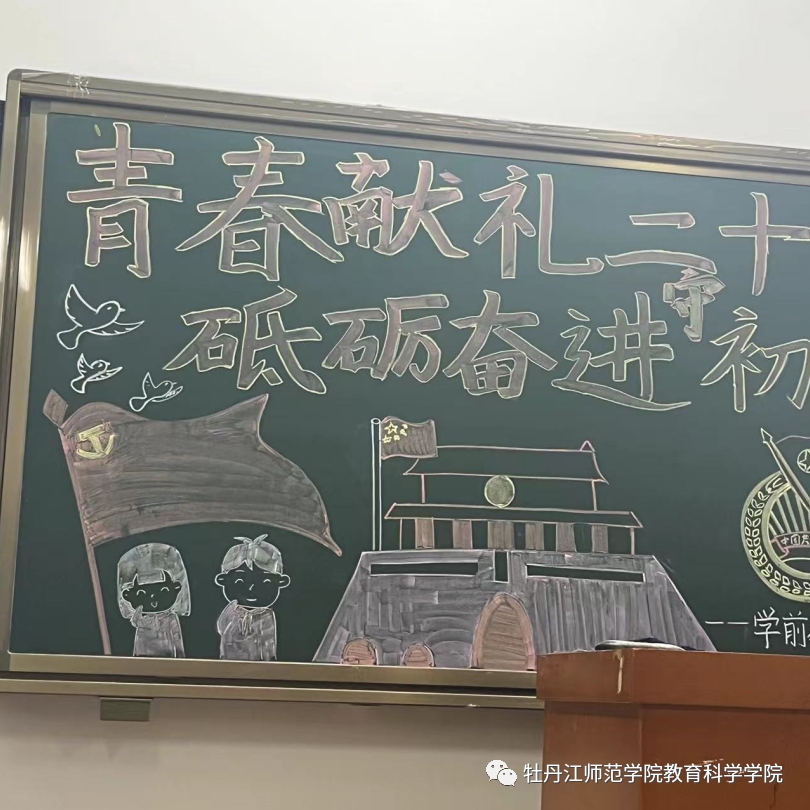 青春献礼二十
砥砺奋进守初
中国共
——学前
牡丹江师范学院教育科学学院